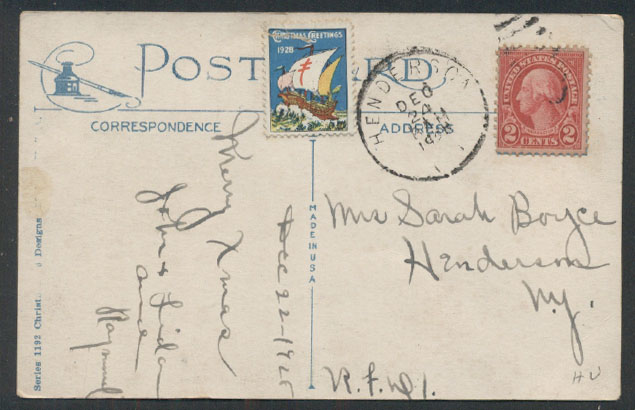 POST CARD
CHRISTMAS GREETINGS
1928
CORRESPONDENCE
ADDRESS
HENDERSON
DEC
24
UNITED STATES POSTAGE
2 CENTS 2
MADE IN U.S.A.
Series 1192 Christ. 6 Designs
Merry Xmas
John & Lida
and
Raymond
Dec 22-1928
Mrs Sarah Boyce
Henderson
N.Y.
R.F.D.1.